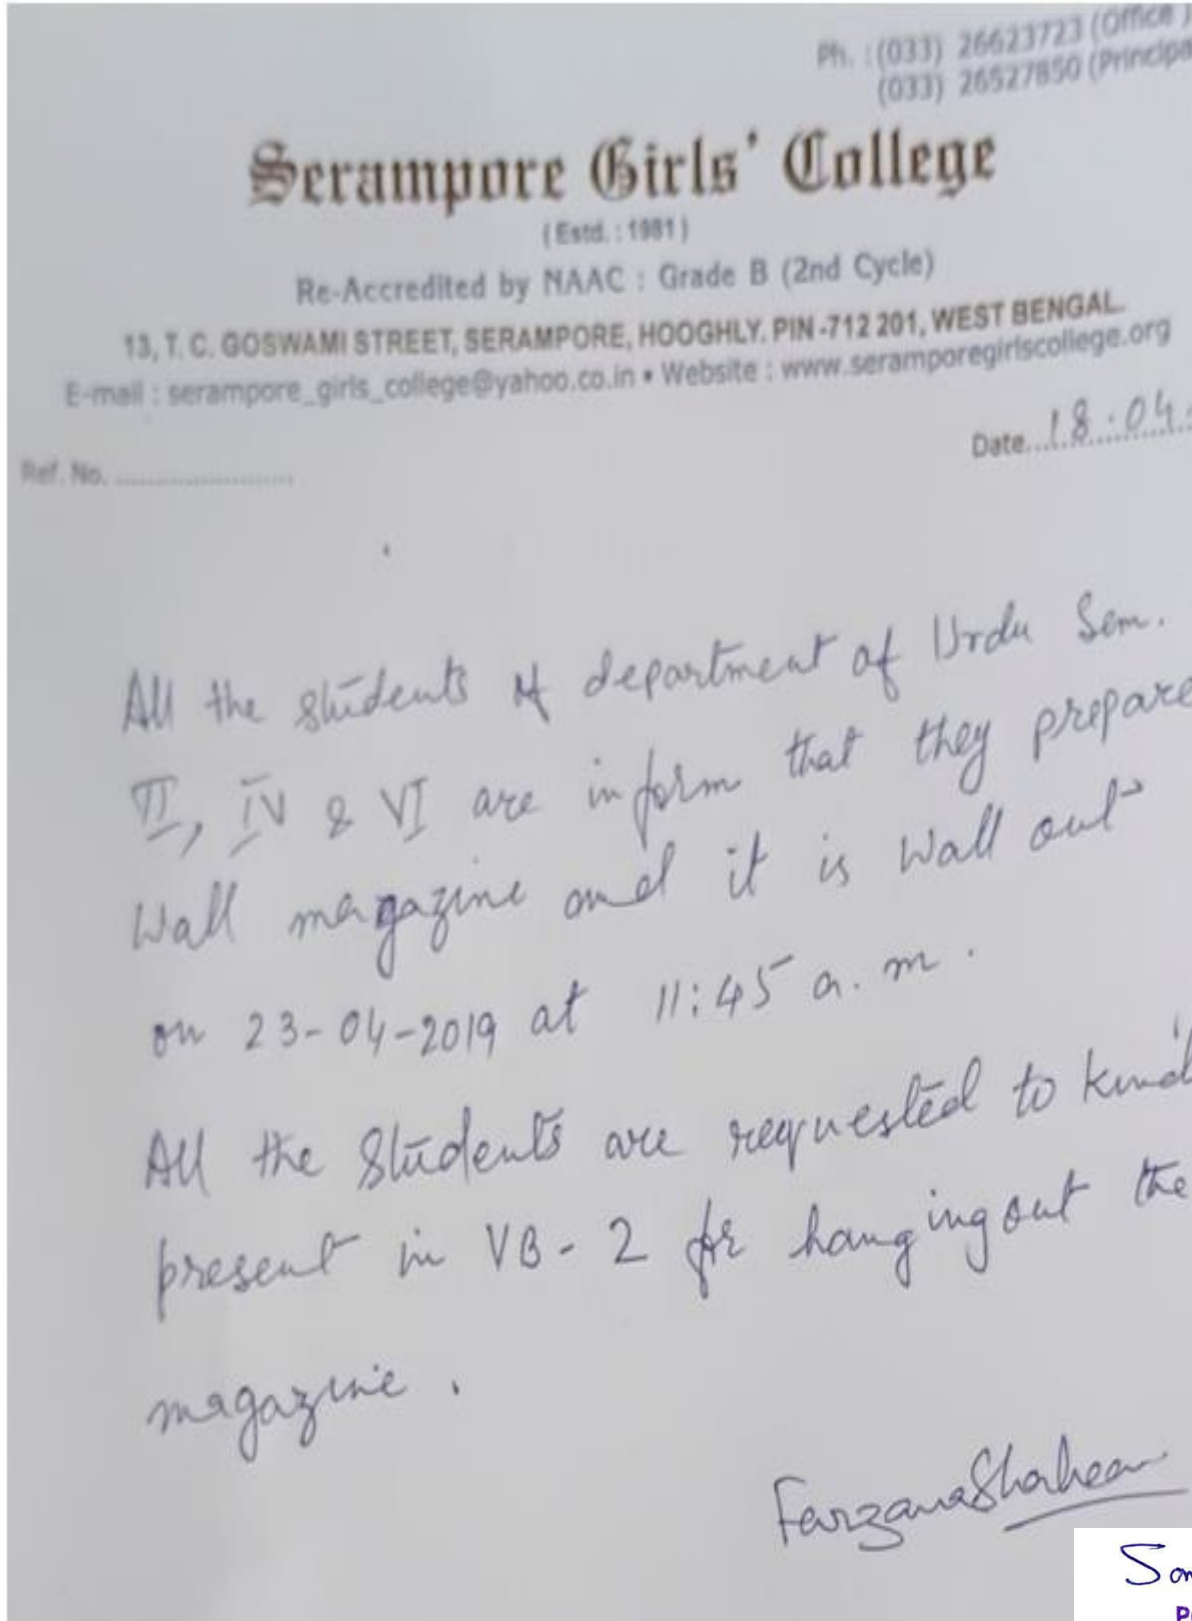 Ph. : (033) 26623723 (Office)
(033) 26527850 (Principa
Serampore Girls' College
(Estd. : 1981)
Re-Accredited by NAAC : Grade B (2nd Cycle)
13, T. C. GOSWAMI STREET, SERAMPORE, HOOGHLY. PIN -712 201, WEST BENGAL.
E-mail : serampore_girls_college@yahoo.co.in • Website : www.seramporegirlscollege.org
Date...18.04.
Ref. No. ........................
All the students of department of Urdu Sem.
II, IV & VI are inform that they prepare
Wall magazine and it is Wall out
on 23-04-2019 at 11:45 a.m.
All the Students are requested to kind
present in VB-2 for hanging out the
magazine.
Farzana Shaheen